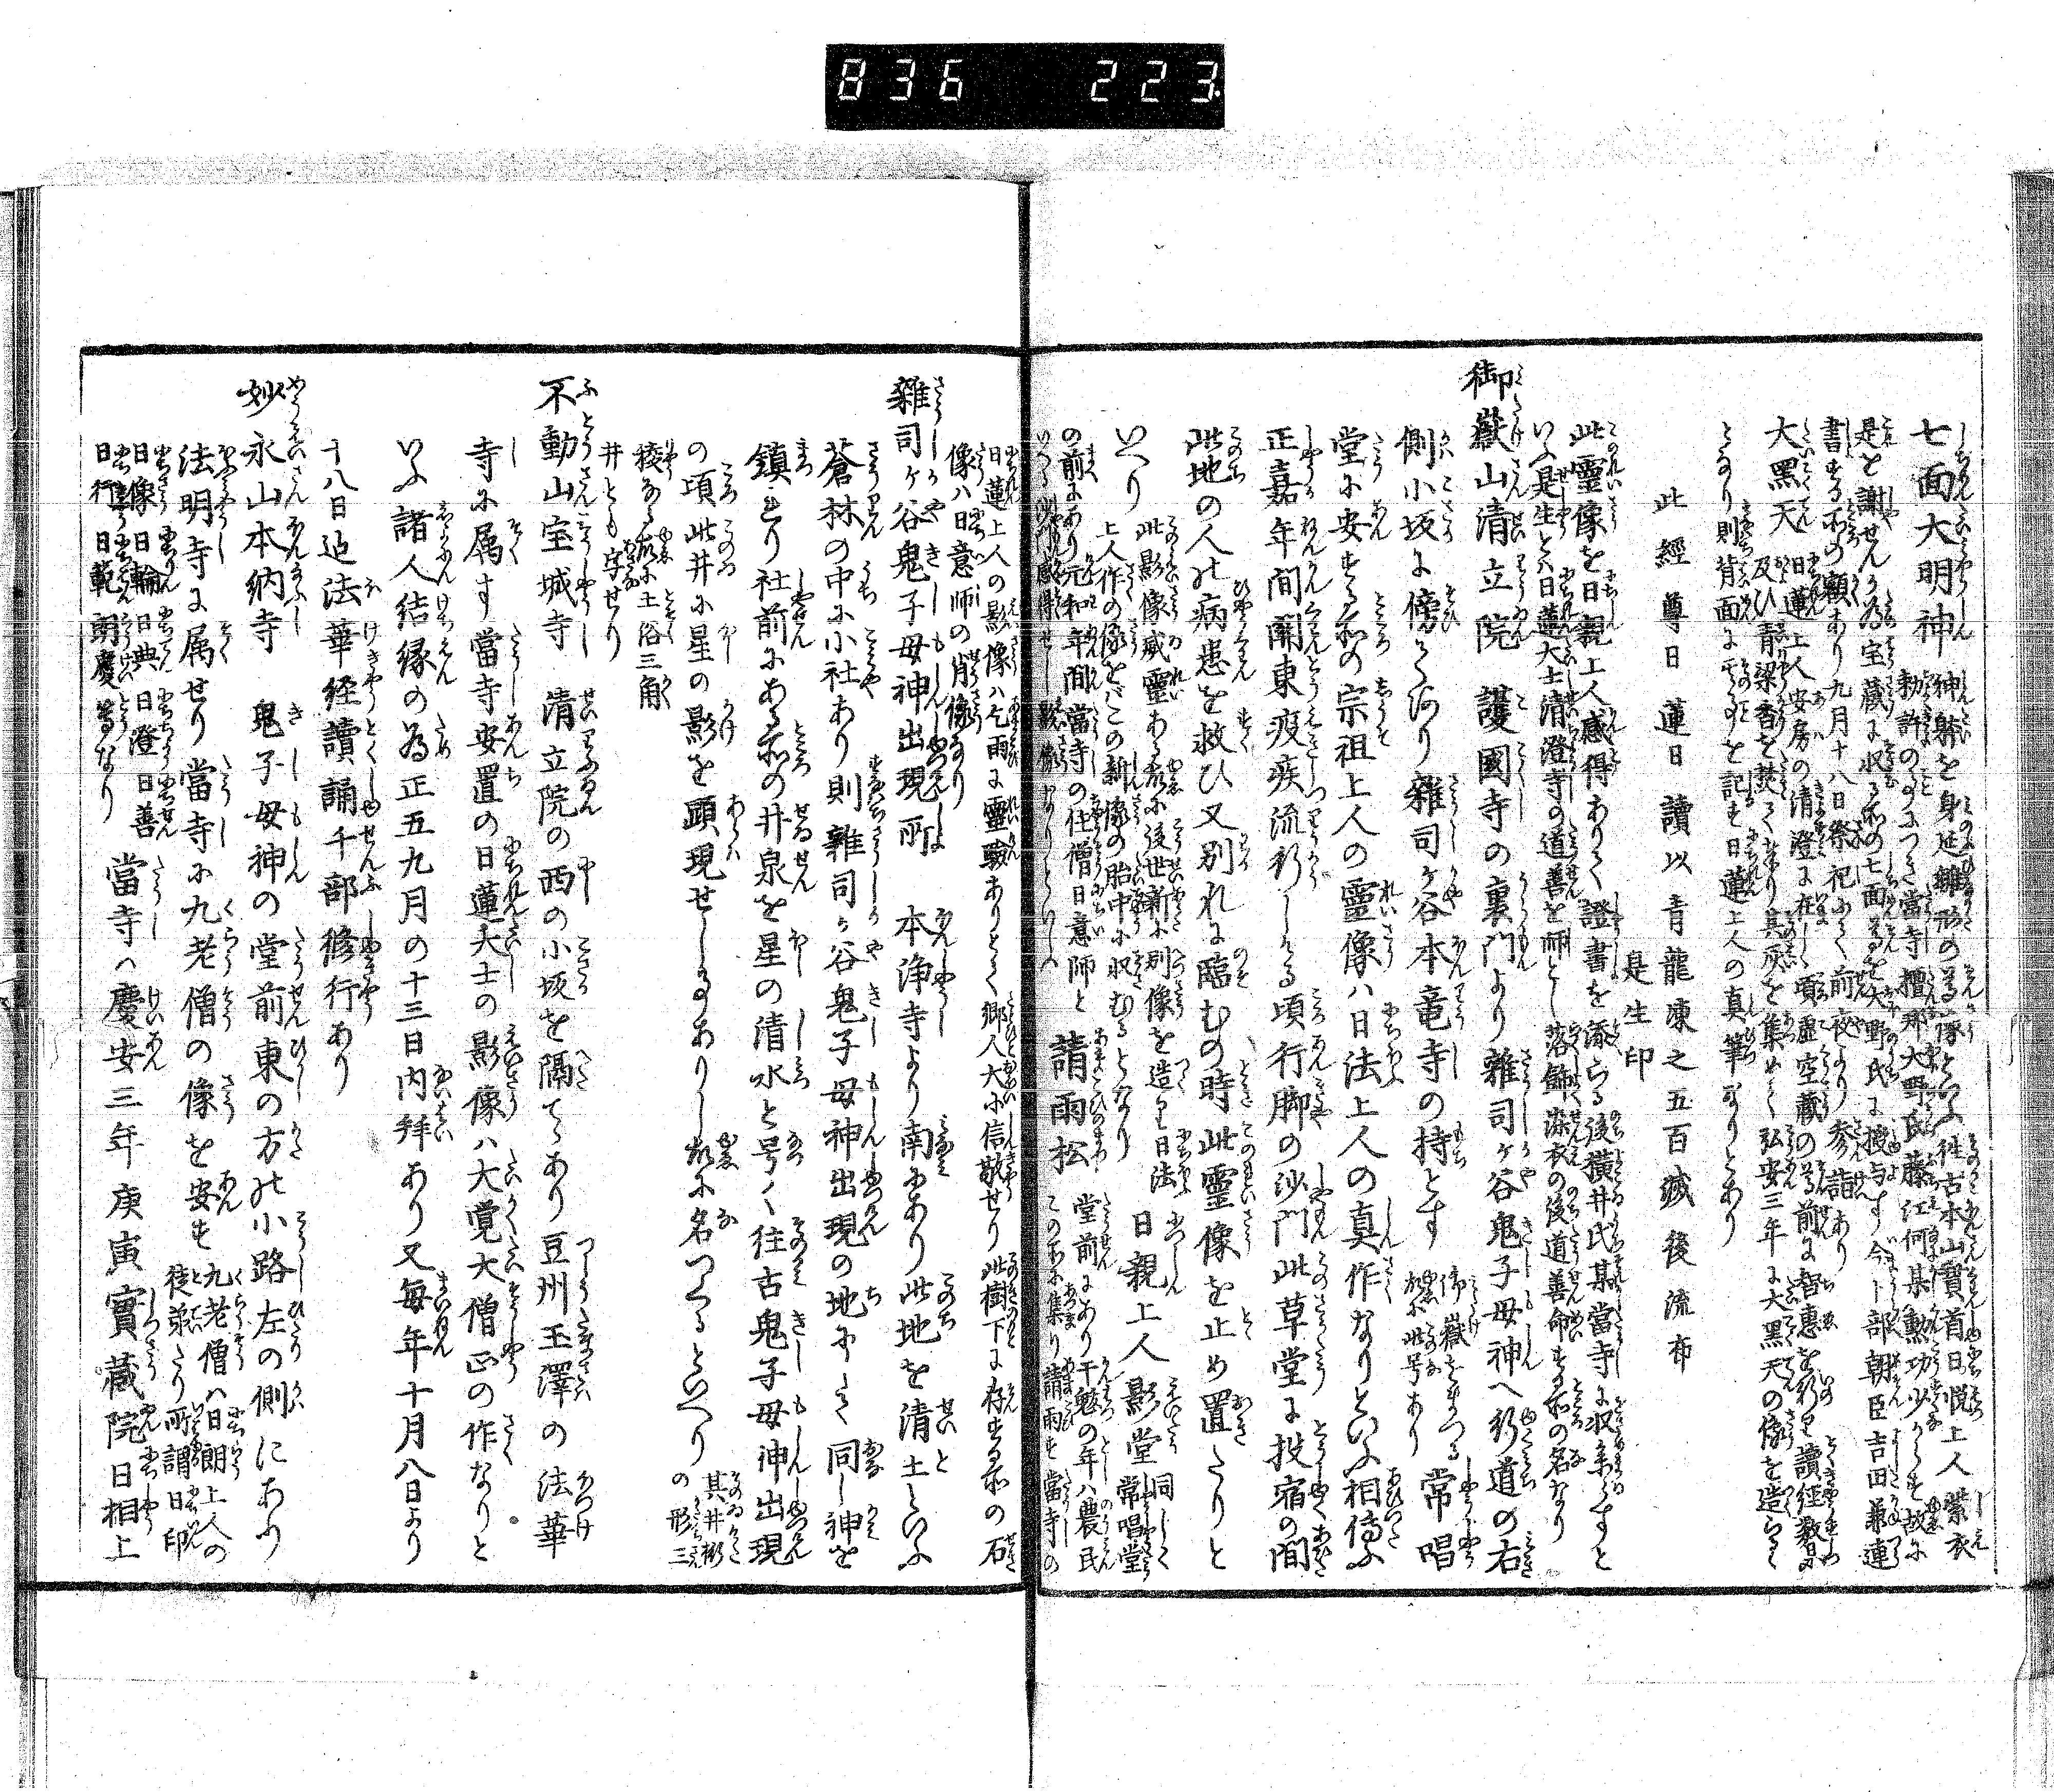 836 223
七面大明神 神躰を身延雛形の尊像といふ往古本山貫首日悦上人紫衣
勅許の事につき當寺檀那大野氏藤江何某勲功少からす故に
是を謝せんか為宝蔵に収る所の七面尊を大野氏に授与す今卜部朝臣吉田兼連
書する所の額あり九月十八日祭祀にて前夜より参詣あり
大黒天 日蓮上人安房の清澄に在し頃虚空蔵の尊前に智恵を祈り讀経数日
及ひ青梁香を焚くことあり其灰を集めて弘安三年に大黒天の像を造らるゝ
となり則背面に其事を記す日蓮上人の真筆なりとあり
此經尊日蓮日讀以青龍凍之五百滅後流布
是生印
此靈像を日親上人感得ありて證書を添らる後横井氏某當寺に収め奉らすと
いふ是生とハ日蓮大士清澄寺の道善を師とし落飾染衣の後道善命する所の名なり
御嶽山清立院 護國寺の裏門より雜司ヶ谷鬼子母神へ行道の右
側小坂に傍てあり雜司ヶ谷本竜寺の持とす 御嶽をまつる故に此号あり 常唱
堂に安する所の宗祖上人の靈像ハ日法上人の真作なりといふ相傳ふ
正嘉年間関東疫疾流行しける頃行脚の沙門此草堂に投宿の間
此地の人の病患を救ひ又別れに臨むの時此靈像を止め置たりと
いへり 此影像威靈ある故に後世新に別像を造り日法上人作の像をバこの新像の胎中に収むるとなり 日親上人影堂 同しく常唱堂
の前にあり元和年間當寺の住僧日意師と
いへる沙門感得せし影像なりといふ 請雨松 堂前にあり干魃の年ハ農民
この所に集り請雨す當寺の
日蓮上人の影像ハ乞雨に靈驗ありとて郷人大に信敬せり此樹下に存する所の石
像ハ日意師の肖像なり
雜司ヶ谷鬼子母神出現所 本浄寺より南にあり此地を清土といふ
蒼林の中に小社あり則雜司ヶ谷鬼子母神出現の地にして同し神を
鎮まり社前にある所の井泉を星の清水と号く往古鬼子母神出現
の頃此井に星の影を顕現せし事ありし故に名つくるといへり 其井桁の形三
稜なる故に土俗三角
井とも字せり
不動山宝城寺 清立院の西の小坂を隔てゝあり豆州玉澤の法華
寺に属す當寺安置の日蓮大士の影像ハ大覚大僧正の作なりと
いふ諸人結縁の為正五九月の十三日内拝あり又毎年十月八日より
十八日迄法華経讀誦千部修行あり
妙永山本納寺 鬼子母神の堂前東の方の小路左の側にあり
法明寺に属せり當寺に九老僧の像を安す 九老僧ハ日朗上人の
徒弟たり所謂日印
日像日輪日典日澄日善
日行日範朗慶等なり 當寺ハ慶安三年庚寅實蔵院日相上